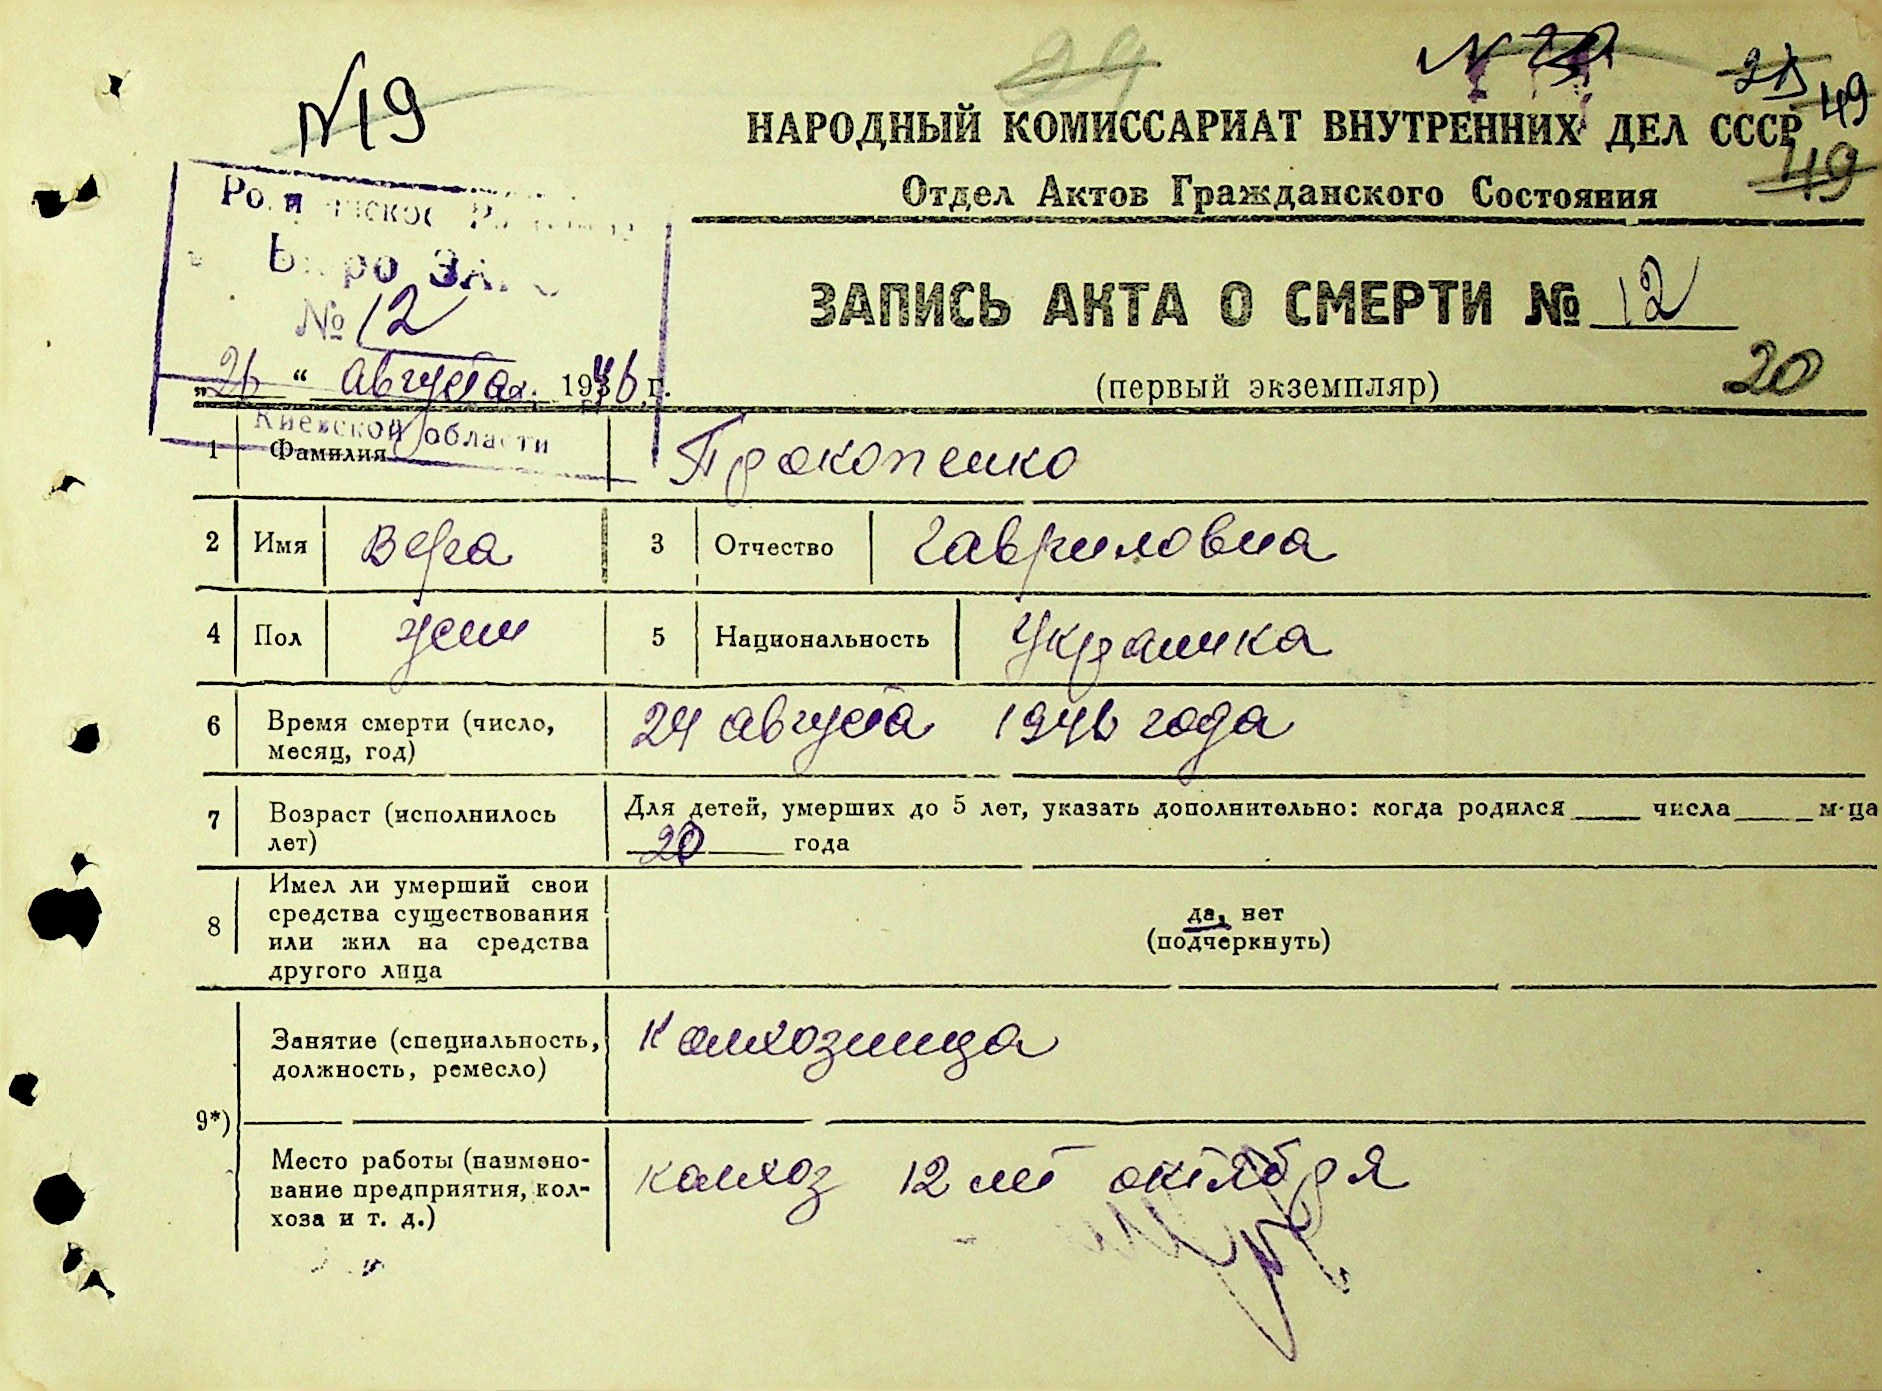 24
N 20
21
49
N19
НАРОДНЫЙ КОМИССАРИАТ ВНУТРЕННИХ ДЕЛ СССР
49
Отдел Актов Гражданского Состояния
Бюро ЗАГС
№ 12
ЗАПИСЬ АКТА О СМЕРТИ № 12
„26“ августа 1946 г.
(первый экземпляр)
20
Киевской области
1 Фамилия Прокопенко
2 Имя Вера 3 Отчество Гавриловна
4 Пол жен 5 Национальность Украинка
6 Время смерти (число, месяц, год) 24 августа 1946 года
7 Возраст (исполнилось лет) Для детей, умерших до 5 лет, указать дополнительно: когда родился ____ числа ____ м-ца
20 года
8 Имел ли умерший свои
средства существования
или жил на средства
другого лица
да, нет
(подчеркнуть)
9*) Занятие (специальность,
должность, ремесло)
Колхозница
Место работы (наимено-
вание предприятия, кол-
хоза и т. д.)
колхоз 12 лет октября